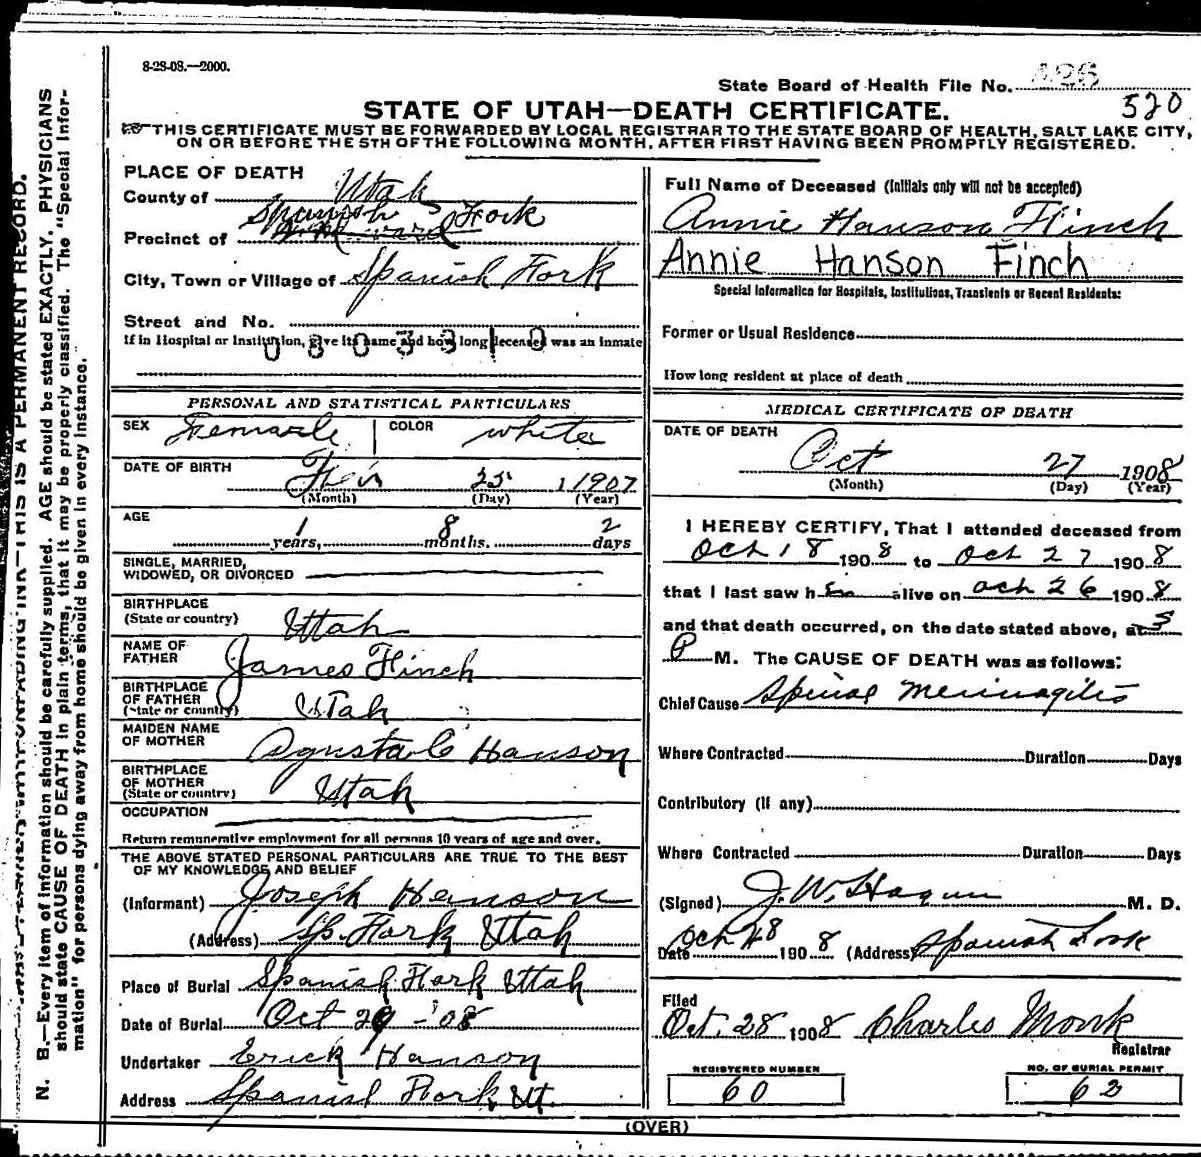 8-28-08.—2000.
State Board of Health File No. 426
520
STATE OF UTAH—DEATH CERTIFICATE.
THIS CERTIFICATE MUST BE FORWARDED BY LOCAL REGISTRAR TO THE STATE BOARD OF HEALTH, SALT LAKE CITY,
ON OR BEFORE THE 5TH OF THE FOLLOWING MONTH, AFTER FIRST HAVING BEEN PROMPTLY REGISTERED.
PLACE OF DEATH
County of Utah
Precinct of Spanish Fork
City, Town or Village of Spanish Fork
Street and No.
If in Hospital or Institution, give its name and how long deceased was an inmate
0 8 0 3 3 1 0
PERSONAL AND STATISTICAL PARTICULARS
SEX Femaele COLOR white
DATE OF BIRTH Feb 25 1907
(Month) (Day) (Year)
AGE
1 years, 8 months. 2 days
SINGLE, MARRIED,
WIDOWED, OR DIVORCED
BIRTHPLACE
(State or country) Utah
NAME OF
FATHER James Finch
BIRTHPLACE
OF FATHER
(State or country) Utah
MAIDEN NAME
OF MOTHER Agusta C Hanson
BIRTHPLACE
OF MOTHER
(State or country) Utah
OCCUPATION
Return remunerative employment for all persons 10 years of age and over.
THE ABOVE STATED PERSONAL PARTICULARS ARE TRUE TO THE BEST
OF MY KNOWLEDGE AND BELIEF
(Informant) Joseph Hanson
(Address) Sp. Fork Utah
Place of Burial Spanish Fork Utah
Date of Burial Oct 29 - '08
Undertaker Erick Hanson
Address Spanish Fork Ut.
Full Name of Deceased (Initials only will not be accepted)
Annie Hanson Finch
Annie Hanson Finch
Special Information for Hospitals, Institutions, Transients or Recent Residents:
Former or Usual Residence
How long resident at place of death
MEDICAL CERTIFICATE OF DEATH
DATE OF DEATH
Oct 27 1908
(Month) (Day) (Year)
I HEREBY CERTIFY, That I attended deceased from
Oct 18 1908 to Oct 27 1908
that I last saw h er alive on Oct 26 1908
and that death occurred, on the date stated above, at 5
P M. The CAUSE OF DEATH was as follows:
Chief Cause Spinal Meninagitis
Where Contracted Duration Days
Contributory (if any)
Where Contracted Duration Days
(Signed) J. W. Hagan M. D.
Date Oct 28 1908 (Address) Spanish Fork
Filed
Oct. 28 1908 Charles Monk
Registrar
REGISTERED NUMBER
60
NO. OF BURIAL PERMIT
62
(OVER)
THIS IS A PERMANENT RECORD.
N. B.—Every item of information should be carefully supplied. AGE should be stated EXACTLY. PHYSICIANS
should state CAUSE OF DEATH in plain terms, that it may be properly classified. The "Special Infor-
mation" for persons dying away from home should be given in every instance.